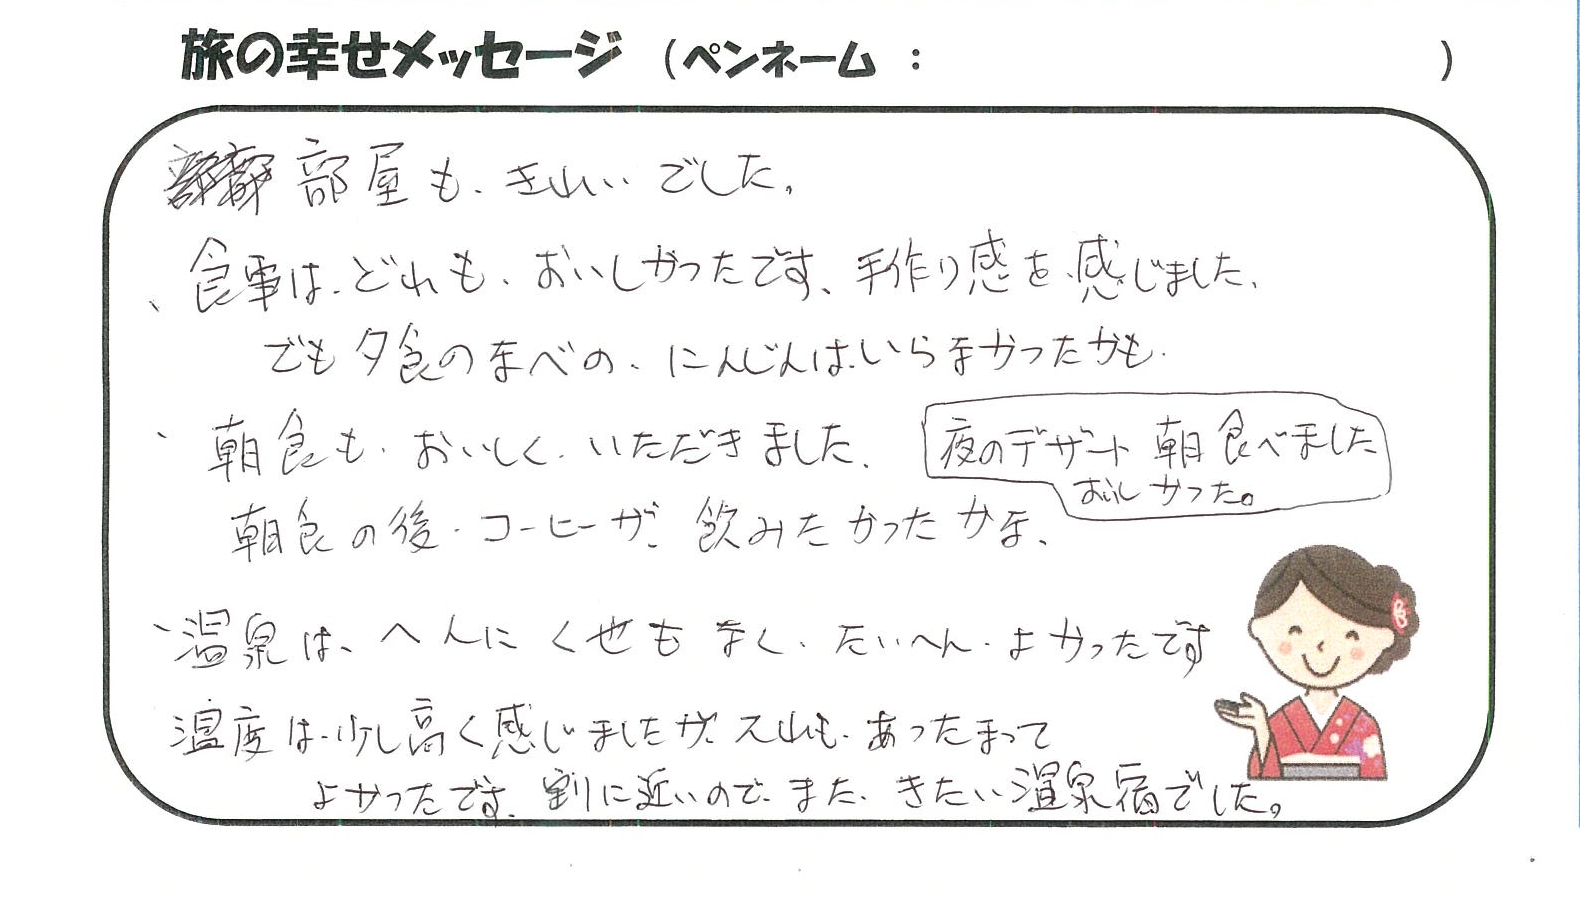 旅の幸せメッセージ （ペンネーム ： ）
部屋も、きれいでした。
、食事は、どれも、おいしかったです、手作り感を、感じました、
でも夕食のなべの、にんじんは、いらなかったかも、
、朝食も、おいしく、いただきました、
夜のデザート 朝食べました
おいしかった。
朝食の後、コーヒーが、飲みたかったかな、
、温泉は、へんにくせもなく、たいへん、よかったです
温度は、少し高く感じましたが、それも、あったまって
よかったです、割に近いので、また、きたい温泉宿でした。